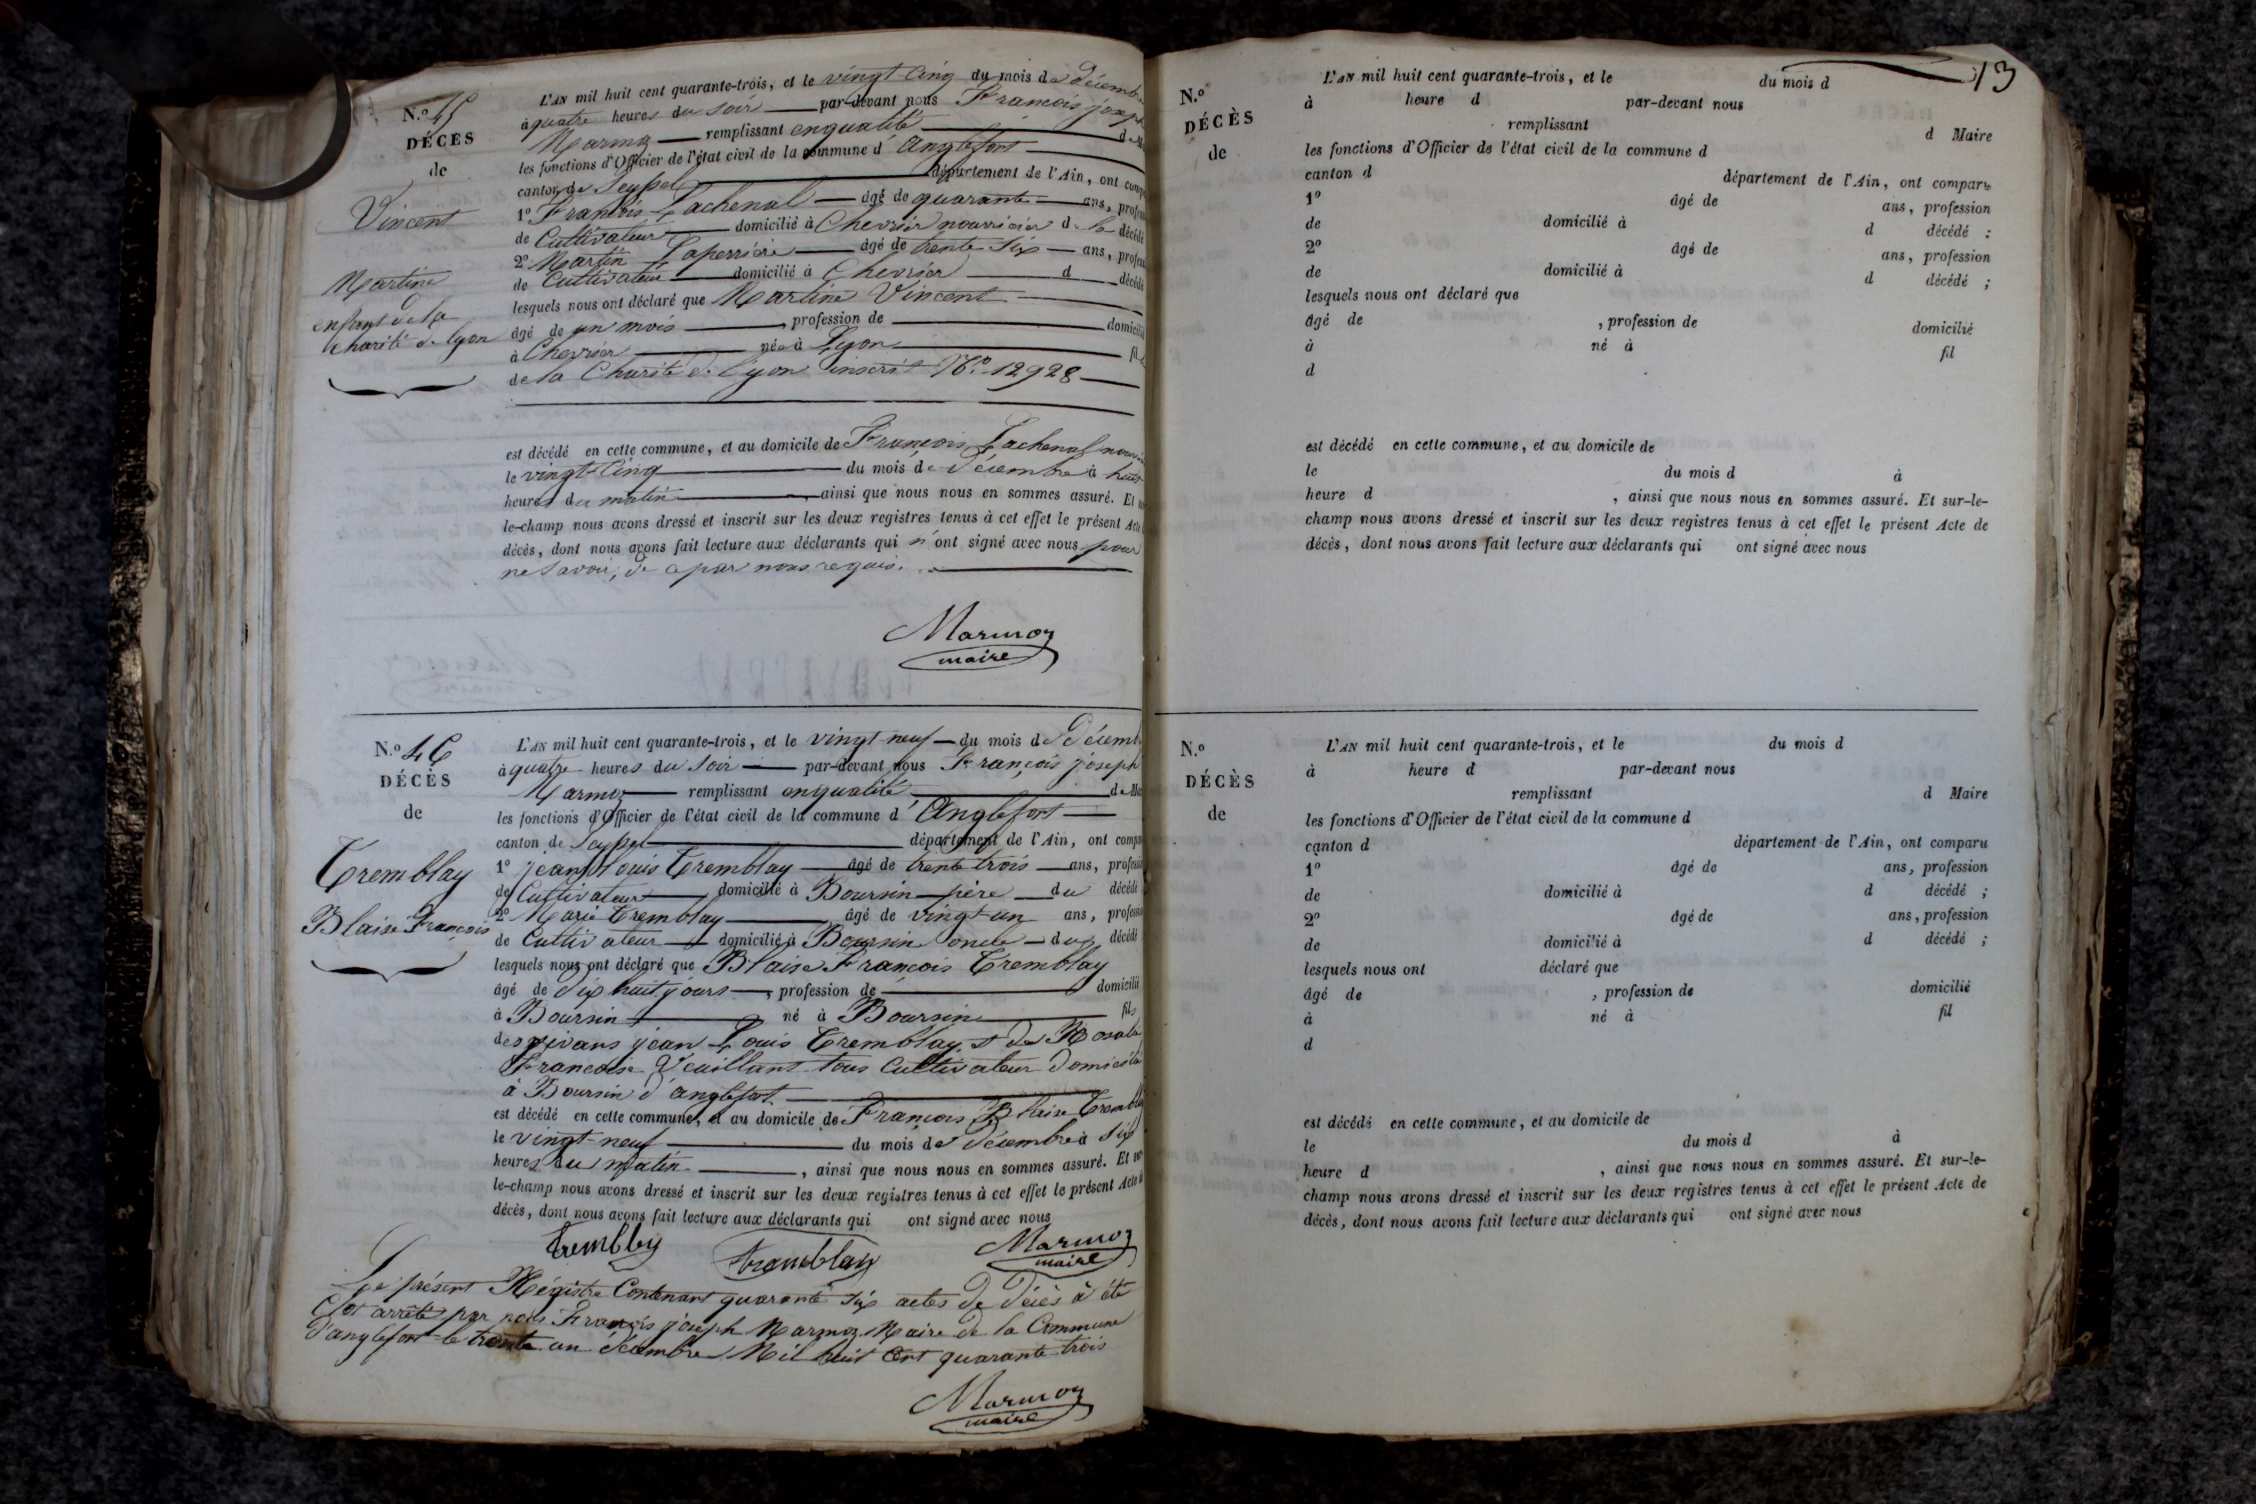 N.º 45
DÉCÈS
de
Vincent
Martine
enfant de la
charité de lyon
L'AN mil huit cent quarante-trois, et le vingt cinq du mois de décembre
à quatre heures du soir par-devant nous François joseph
Marmoz remplissant en qualité de M
les fonctions d'Officier de l'état civil de la commune d'Anglefort
canton de Seyssel département de l'Ain, ont comp
1º François Lachenal âgé de quarante ans, profes
de Cultivateur domicilié à Chevrier nourricier de la décédé
2º Martin Laperrière âgé de trente six ans, profes
de Cultivateur domicilié à Chevrier d décédé
lesquels nous ont déclaré que Martine Vincent
âgé de un mois, profession de domicilié
à Chevrier née à Lyon fil
de la Charité de Lyon inscrit Nº 12928
est décédé en cette commune, et au domicile de François Lachenal
le vingt-cinq du mois de décembre à huit
heures du matin, ainsi que nous nous en sommes assuré. Et
le-champ nous avons dressé et inscrit sur les deux registres tenus à cet effet le présent Acte
décès, dont nous avons fait lecture aux déclarants qui n'ont signé avec nous pour
ne savoir, de ce par nous requis.
Marmoz
maire
N.º 46
DÉCÈS
de
Tremblay
Blaise François
L'AN mil huit cent quarante-trois, et le vingt neuf du mois de Décemb
à quatre heures du soir par-devant nous François joseph
Marmoz remplissant en qualité de M
les fonctions d'Officier de l'état civil de la commune d'Anglefort
canton de Seyssel département de l'Ain, ont comp
1º jean Louis Tremblay âgé de trente trois ans, profess
de Cultivateur domicilié à Boursin père du décédé
2º Marie Tremblay âgé de vingt un ans, profess
de Cultivateur domicilié à Boursin oncle du décédé
lesquels nous ont déclaré que Blaise François Tremblay
âgé de dix huit jours, profession de domicilié
à Boursin né à Boursin fils
des vivans jean Louis Tremblay et de Rosalie
Francoise Vaillant tous Cultivateur domicilié
à Boursin d'anglefort
est décédé en cette commune, et au domicile de François Blaise Trembla
le vingt-neuf du mois de décembre à six
heures du matin, ainsi que nous nous en sommes assuré. Et
le-champ nous avons dressé et inscrit sur les deux registres tenus à cet effet le présent Acte
décès, dont nous avons fait lecture aux déclarants qui ont signé avec nous
Trembley Tremblay Marmoz
maire
Le présent Régistre Contenant quarante six actes de décès à été
Clos arrêté par nous François joseph Marmoz Maire de la Commune
d'anglefort le trente un décembre Mil huit Cent quarante trois
Marmoz
maire
13
N.º
DÉCÈS
de
L'AN mil huit cent quarante-trois, et le du mois d
à heure d par-devant nous
remplissant d Maire
les fonctions d'Officier de l'état civil de la commune d
canton d département de l'Ain, ont comparu
1º âgé de ans, profession
de domicilié à d décédé ;
2º âgé de ans, profession
de domicilié à d décédé ;
lesquels nous ont déclaré que
âgé de , profession de domicilié
à né à fil
d
est décédé en cette commune, et au domicile de
le du mois d à
heure d , ainsi que nous nous en sommes assuré. Et sur-le-
champ nous avons dressé et inscrit sur les deux registres tenus à cet effet le présent Acte de
décès, dont nous avons fait lecture aux déclarants qui ont signé avec nous
N.º
DÉCÈS
de
L'AN mil huit cent quarante-trois, et le du mois d
à heure d par-devant nous
remplissant d Maire
les fonctions d'Officier de l'état civil de la commune d
canton d département de l'Ain, ont comparu
1º âgé de ans, profession
de domicilié à d décédé ;
2º âgé de ans, profession
de domicilié à d décédé ;
lesquels nous ont déclaré que
âgé de , profession de domicilié
à né à fil
d
est décédé en cette commune, et au domicile de
le du mois d à
heure d , ainsi que nous nous en sommes assuré. Et sur-le-
champ nous avons dressé et inscrit sur les deux registres tenus à cet effet le présent Acte de
décès, dont nous avons fait lecture aux déclarants qui ont signé avec nous